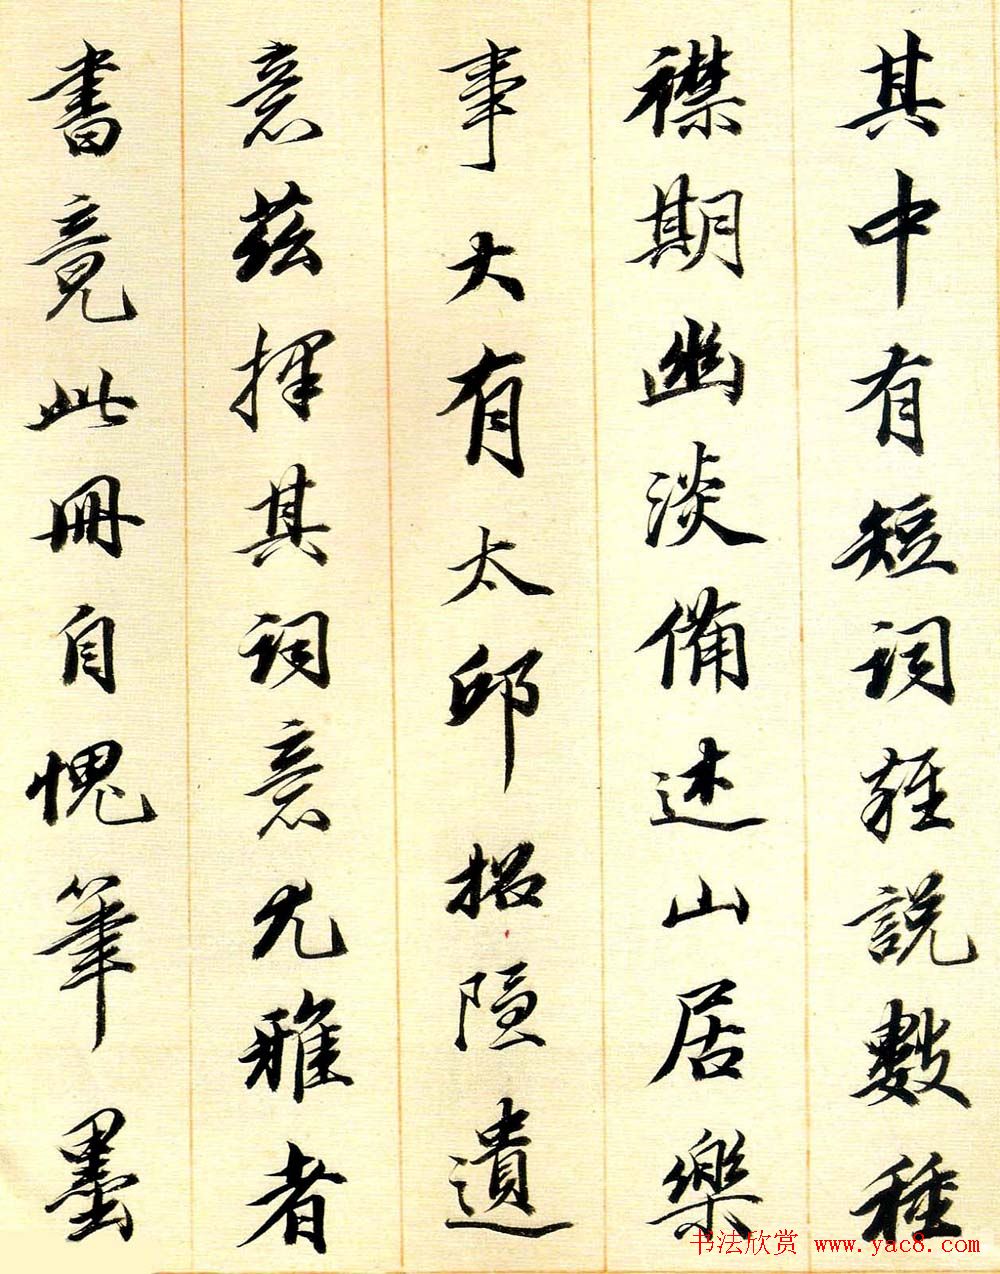 其中有短词雜説數種
襟期幽淡備述山居樂
事大有太邱招隐遺
意兹擇其词意尤雅者
書竟此冊自愧筆墨
书法欣赏 www.yac8.com